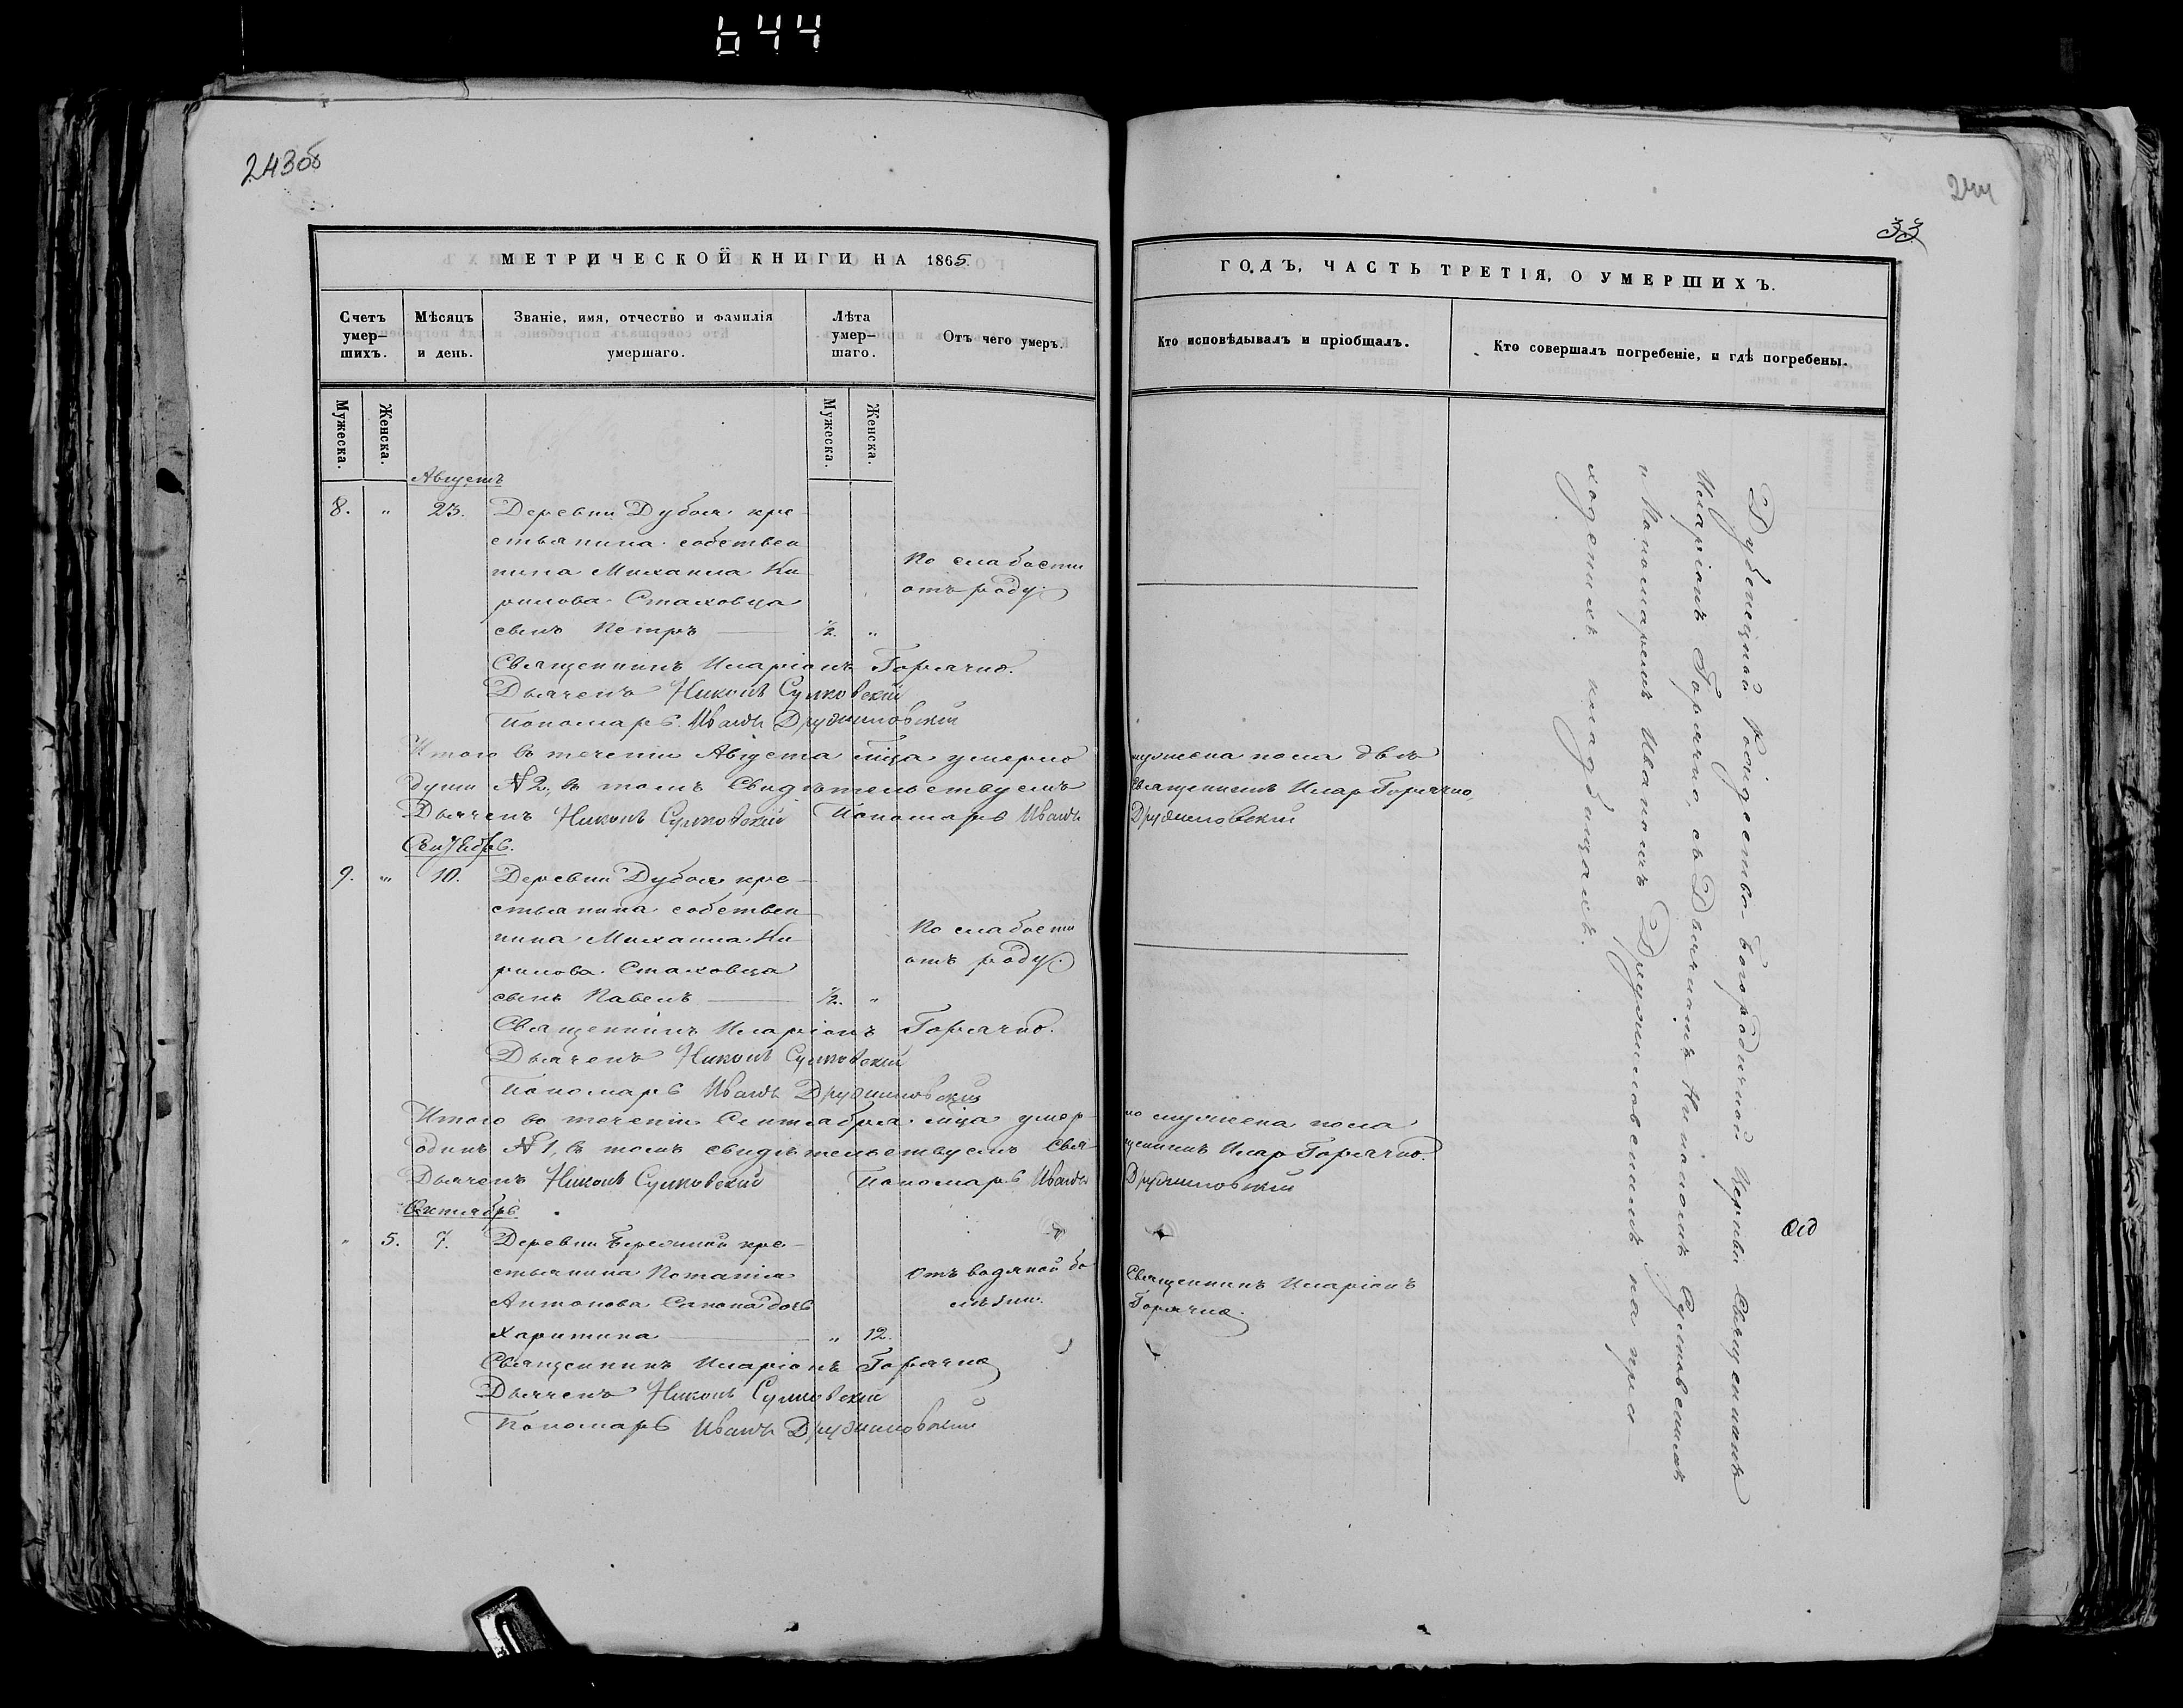 644
243об
244
33
МЕТРИЧЕСКОЙ КНИГИ НА 1865.
ГОДЪ, ЧАСТЬ ТРЕТІЯ, О УМЕРШИХЪ.
Счетъ умер-шихъ.
Мѣсяцъ и день.
Званіе, имя, отчество и фамилія умершаго.
Лѣта умер-шаго.
Отъ чего умеръ.
Кто исповѣдывалъ и пріобщалъ.
Кто совершалъ погребеніе, и гдѣ погребены.
Мужеска.
Женска.
Мужеска.
Женска.
Августъ
8. " 23. Деревни Дубоя кре-
стьянина собствен
ника Михаила Ки
рилова Стаховца
сынъ Петръ ½. "
По слабости
отъ роду
Священникъ Иларіонъ Горячко.
Дьячекъ Никонъ Сулковскій
Пономарь Иванъ Дружиловскій
Итого въ теченіи Августа мца умерло мужеска пола двѣ
души № 2, въ томъ Свидѣтельствуемъ Священникъ Илар Горячко,
Дьячекъ Никонъ Сулковскій Пономарь Иванъ Дружиловскій
Сентябрь.
9. " 10. Деревни Дубоя кре-
стьянина собствен-
ника Михаила Ки
рилова Стаховца
сынъ Павелъ ½. "
По слабости
отъ роду
Священникъ Иларіонъ Горячко.
Дьячекъ Никонъ Сулковскій
Пономарь Иванъ Дружиловскій
Итого въ теченіи Сентября мца умер-ло мужеска пола
одинъ № 1, въ томъ свидѣтельствуемъ Свя-щенникъ Илар Горячко.
Дьячекъ Никонъ Сулковскій Пономарь Иванъ Дружиловскій
Сентябрь
" 5. 7. Деревни Березиной кре-
стьянина Потапія
Антонова дочь
Харитина " 12.
Отъ водяной бо
лѣзни.
Священникъ Иларіонъ
Горячко.
Священникъ Иларіонъ Горячко
Дьячекъ Никонъ Сулковскій
Пономарь Иванъ Дружиловскій
Рождество-Богородичной Церкви Священникъ
Иларіонъ Горячко, съ Дьячкомъ Никономъ Сулковскимъ
и Пономаремъ Иваномъ Дружиловскимъ на при-
ходскихъ кладбищахъ.